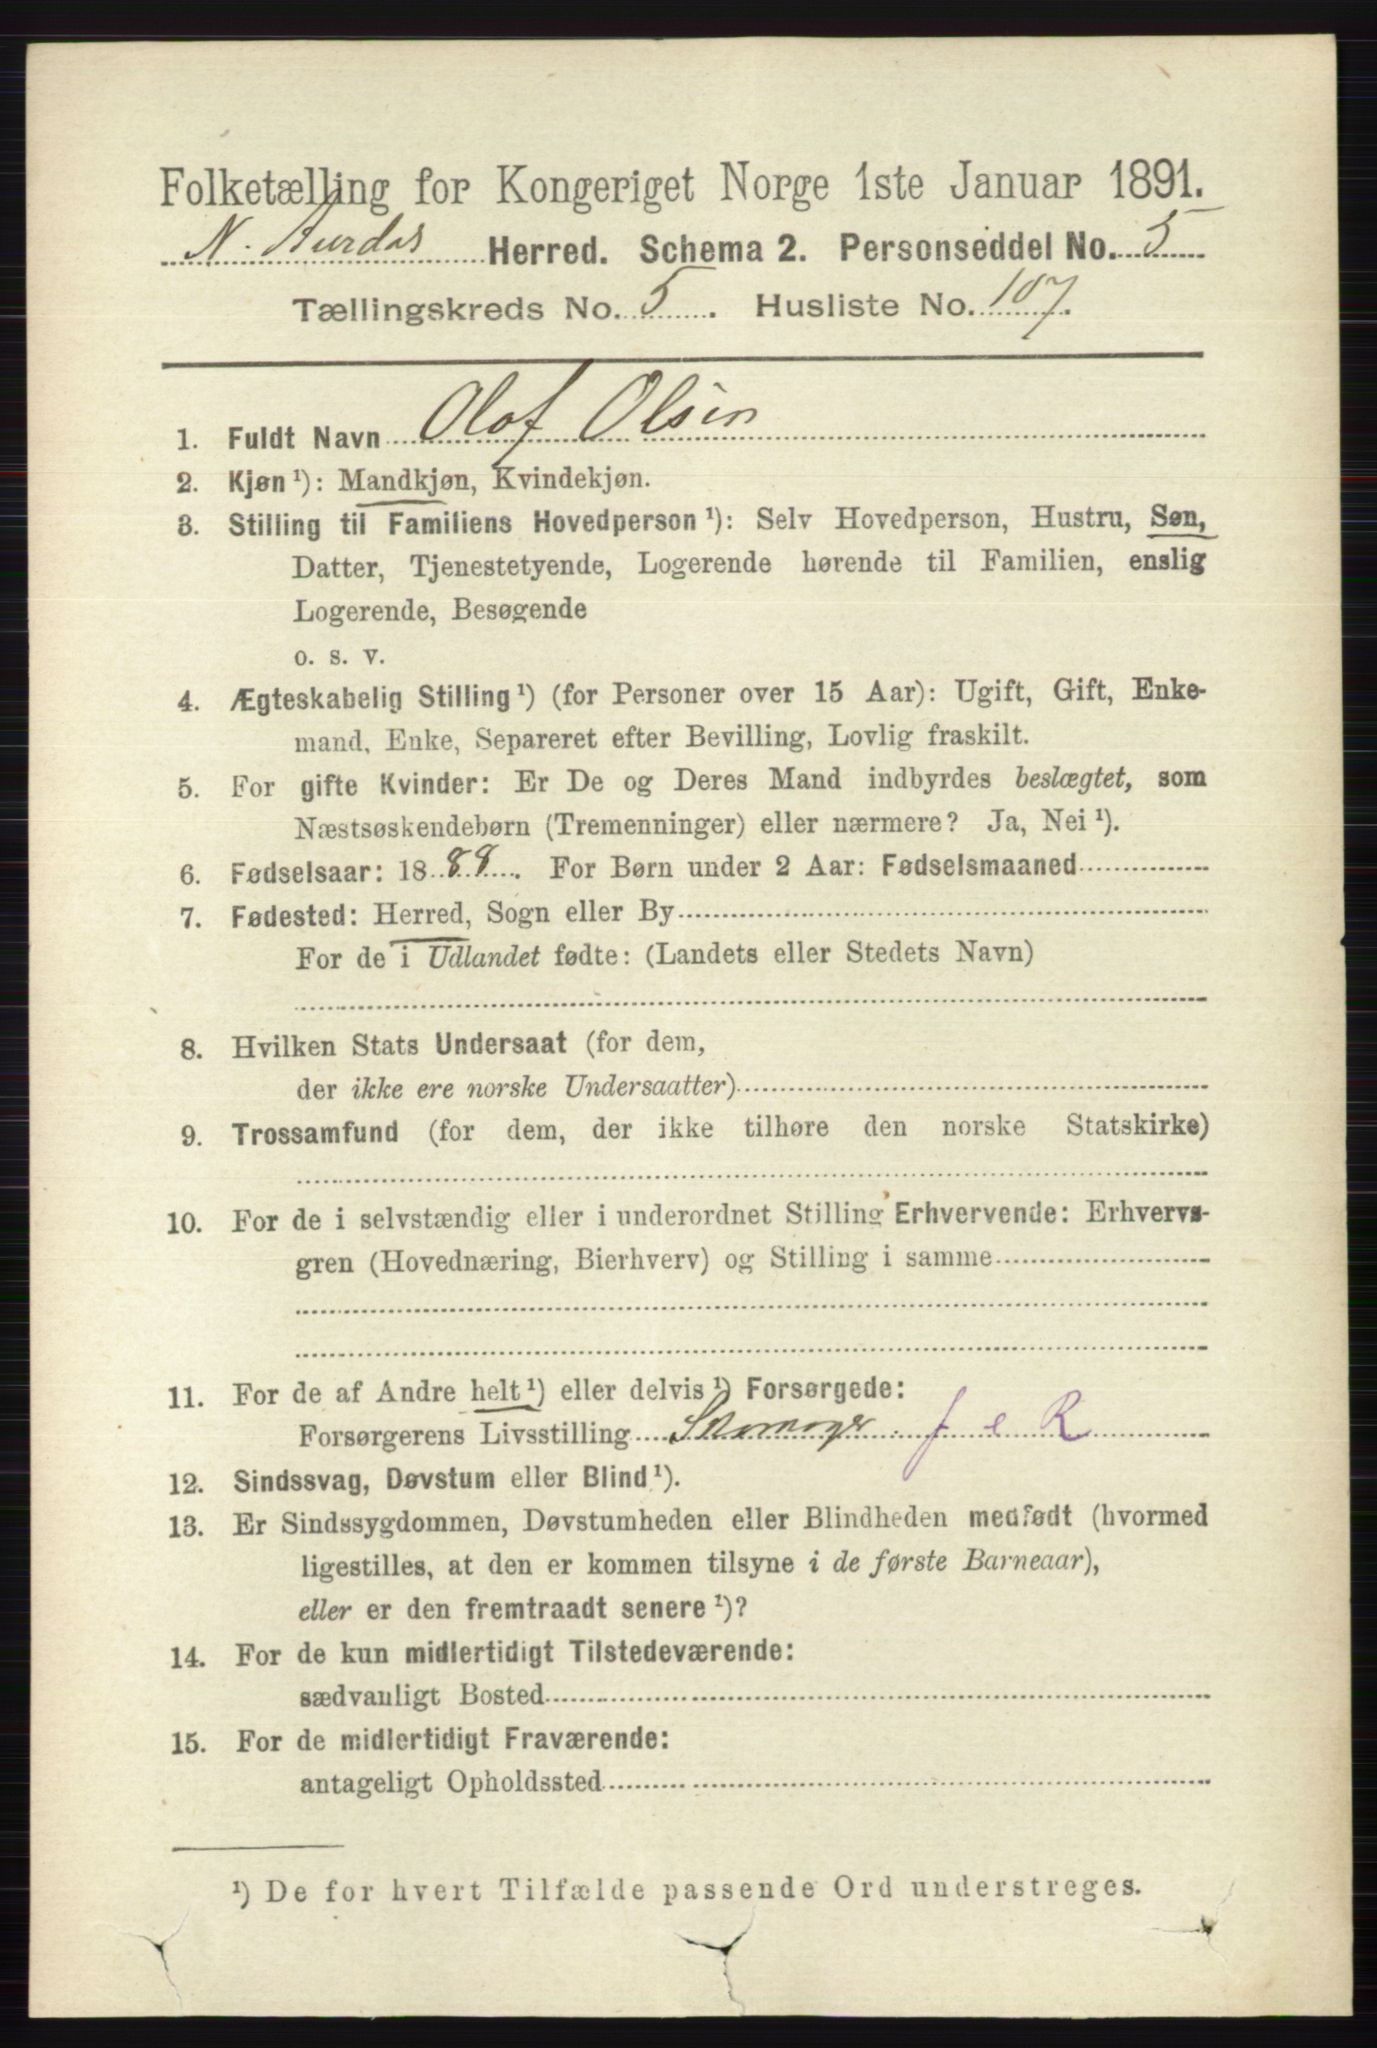 Folketælling for Kongeriget Norge 1ste Januar 1891.
N. Aurdal Herred. Schema 2. Personseddel No. 5
Tællingskreds No. 5. Husliste No. 107.
1. Fuldt Navn Olof Olsen
2. Kjøn ¹): Mandkjøn, Kvindekjøn.
3. Stilling til Familiens Hovedperson ¹): Selv Hovedperson, Hustru, Søn,
Datter, Tjenestetyende, Logerende hørende til Familien, enslig
Logerende, Besøgende
o. s. v.
4. Ægteskabelig Stilling ¹) (for Personer over 15 Aar): Ugift, Gift, Enke-
mand, Enke, Separeret efter Bevilling, Lovlig fraskilt.
5. For gifte Kvinder: Er De og Deres Mand indbyrdes beslægtet, som
Næstsøskendebørn (Tremenninger) eller nærmere? Ja, Nei ¹).
6. Fødselsaar: 1888. For Børn under 2 Aar: Fødselsmaaned
7. Fødested: Herred, Sogn eller By
For de i Udlandet fødte: (Landets eller Stedets Navn)
8. Hvilken Stats Undersaat (for dem,
der ikke ere norske Undersaatter)
9. Trossamfund (for dem, der ikke tilhøre den norske Statskirke)
10. For de i selvstændig eller i underordnet Stilling Erhvervende: Erhvervs-
gren (Hovednæring, Bierhverv) og Stilling i samme
11. For de af Andre helt ¹) eller delvis ¹) Forsørgede:
Forsørgerens Livsstilling Skomager. f e R
12. Sindssvag, Døvstum eller Blind ¹).
13. Er Sindssygdommen, Døvstumheden eller Blindheden medfødt (hvormed
ligestilles, at den er kommen tilsyne i de første Barneaar),
eller er den fremtraadt senere ¹)?
14. For de kun midlertidigt Tilstedeværende:
sædvanligt Bosted
15. For de midlertidigt Fraværende:
antageligt Opholdssted
¹) De for hvert Tilfælde passende Ord understreges.